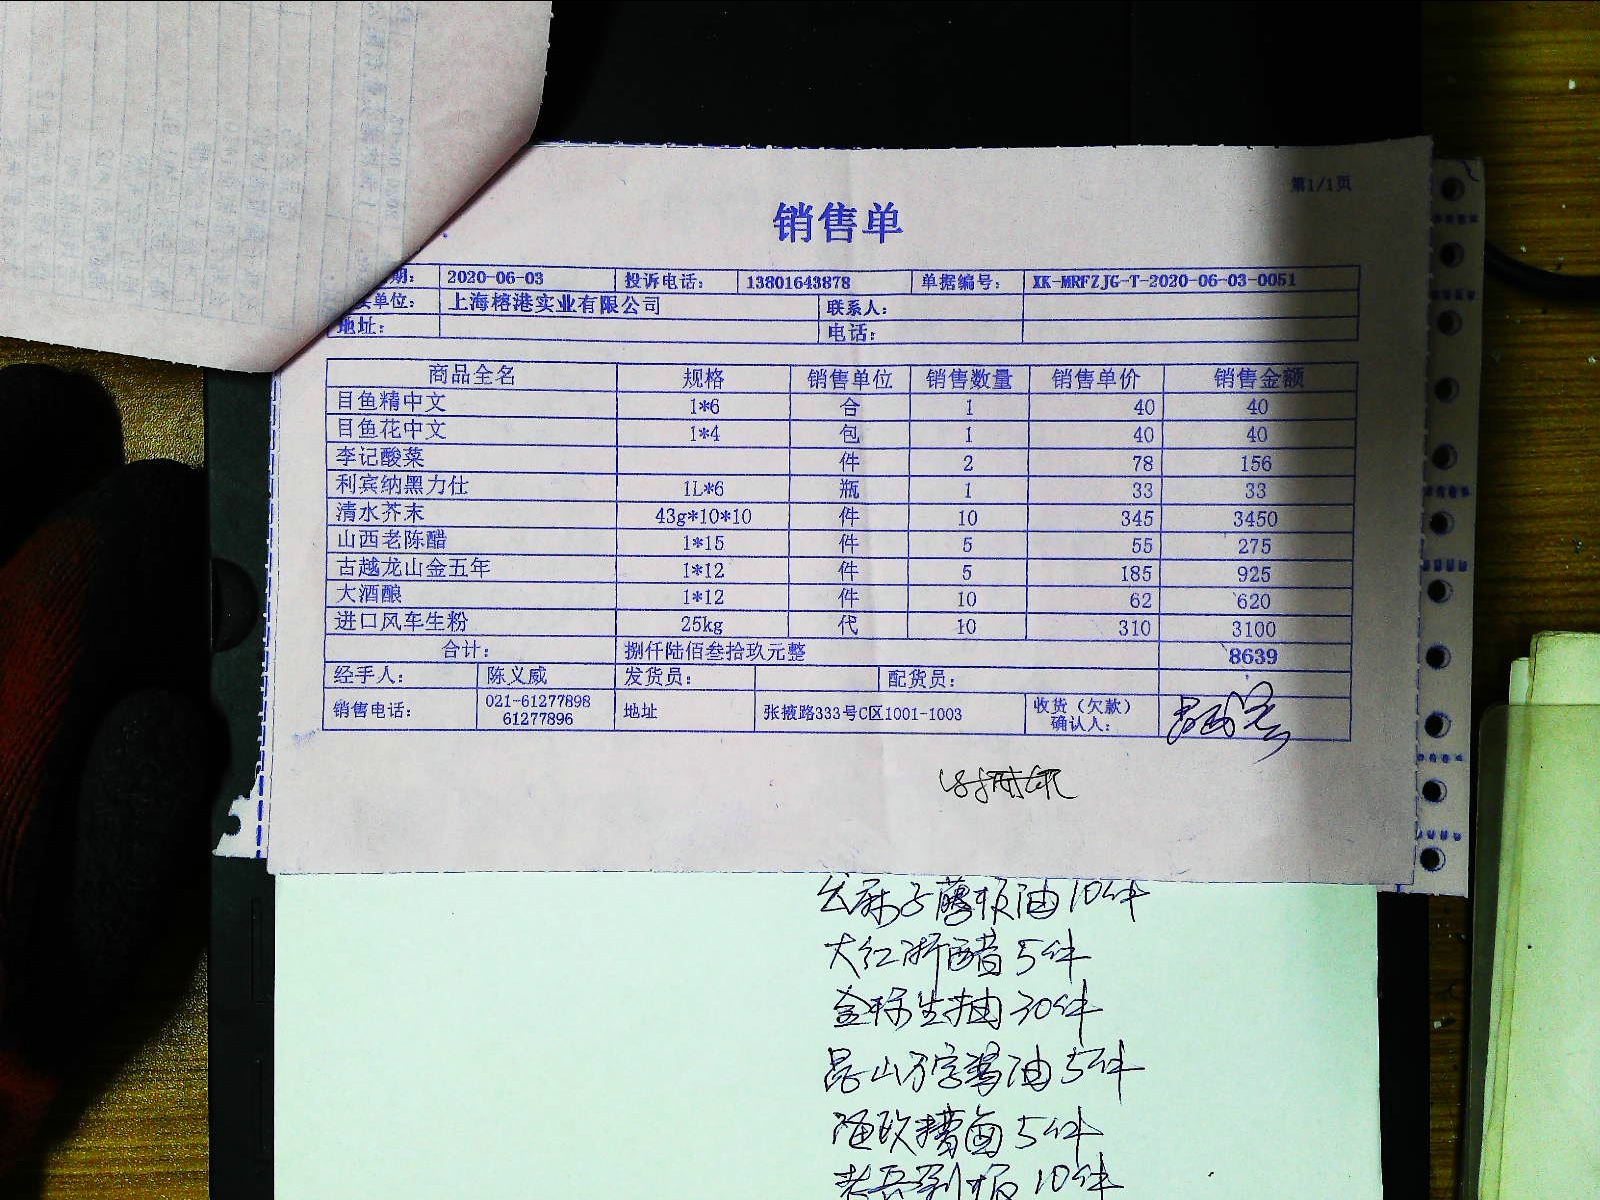 第1/1页
销售单
期: 2020-06-03 投诉电话: 13801643878 单据编号: XK-MRFZJG-T-2020-06-03-0051
单位: 上海榕港实业有限公司 联系人:
地址: 电话:
商品全名 规格 销售单位 销售数量 销售单价 销售金额
目鱼精中文 1*6 合 1 40 40
目鱼花中文 1*4 包 1 40 40
李记酸菜 件 2 78 156
利宾纳黑力仕 1L*6 瓶 1 33 33
清水芥末 43g*10*10 件 10 345 3450
山西老陈醋 1*15 件 5 55 275
古越龙山金五年 1*12 件 5 185 925
大酒酿 1*12 件 10 62 620
进口风车生粉 25kg 代 10 310 3100
合计: 捌仟陆佰叁拾玖元整 8639
经手人: 陈义威 发货员: 配货员:
销售电话: 021-61277898 61277896 地址 张掖路333号C区1001-1003 收货（欠款）确认人:
油10件
大红浙醋5件
金标生抽30件
昆山万字酱油5件
糟卤5件
10件